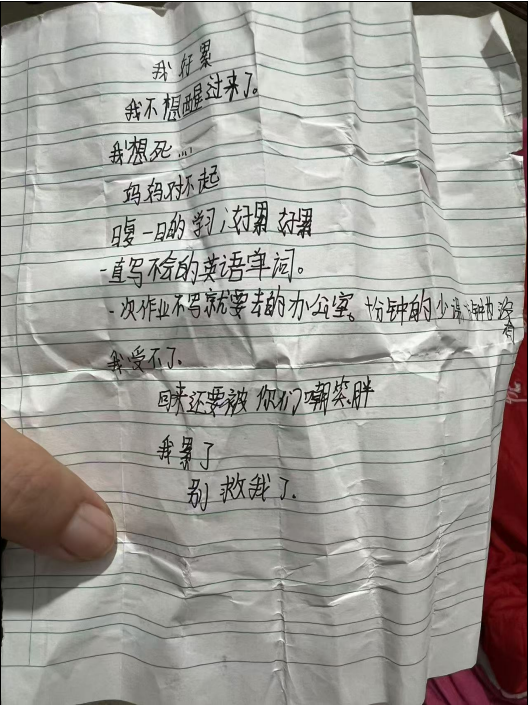 我好累
我不想醒过来了。
我想死...
妈妈对不起
日复一日的学习,好累 好累
一直写不会的英语单词。
一次作业不写就要去的办公室。十分钟的少
我受不了
回来还要被你们嘲笑胖
我累了
别救我了.